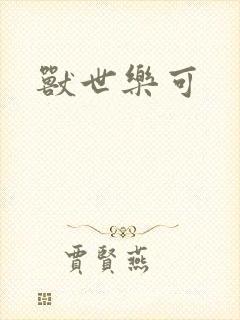 獸世樂可
賈賢燕